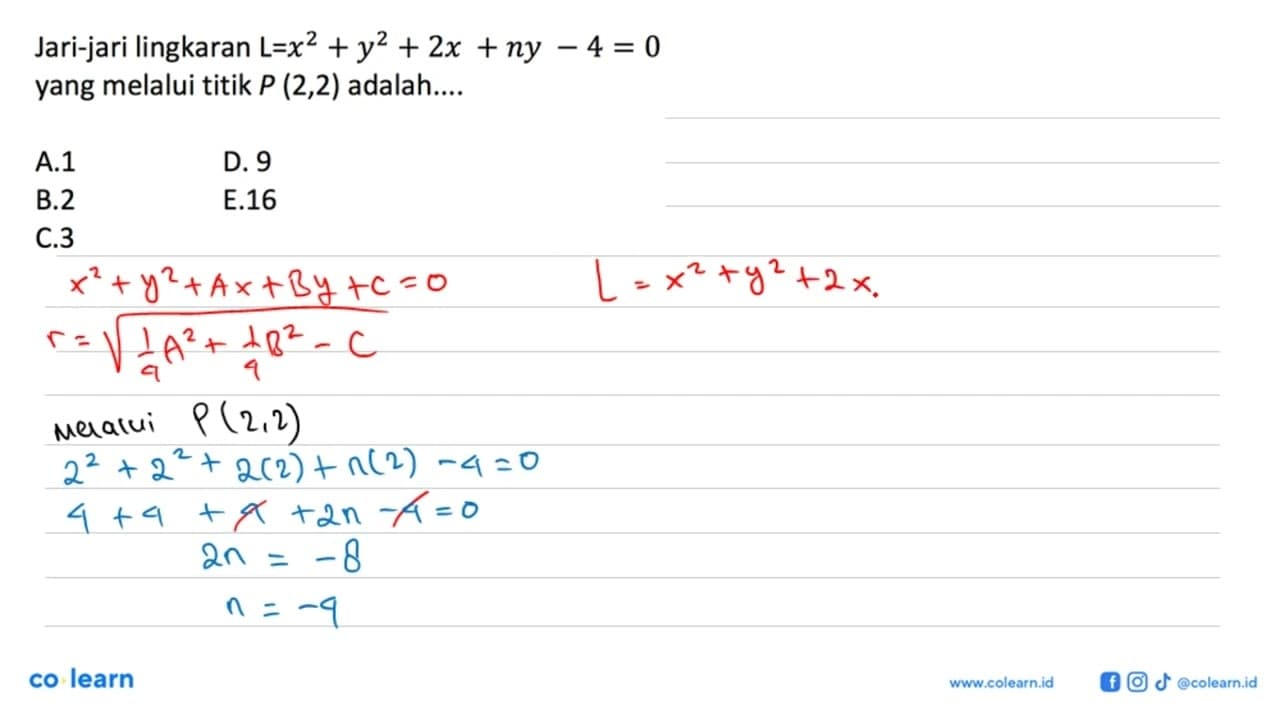 Jari-jari lingkaran L=x² + y² + 2x + ny − 4 = 0
yang melalui titik P (2,2) adalah....
A.1
D. 9
B.2
E.16
C.3
x² + y² + Ax + By + C = 0
L = x² + y² + 2x.
r = √(1/4 A² + 1/4 B² − C)
Melalui P(2,2)
2² + 2² + 2(2) + n(2) − 4 = 0
4 + 4 + 4 + 2n − 4 = 0
2n = −8
n = −4
co learn
www.colearn.id
@colearn.id